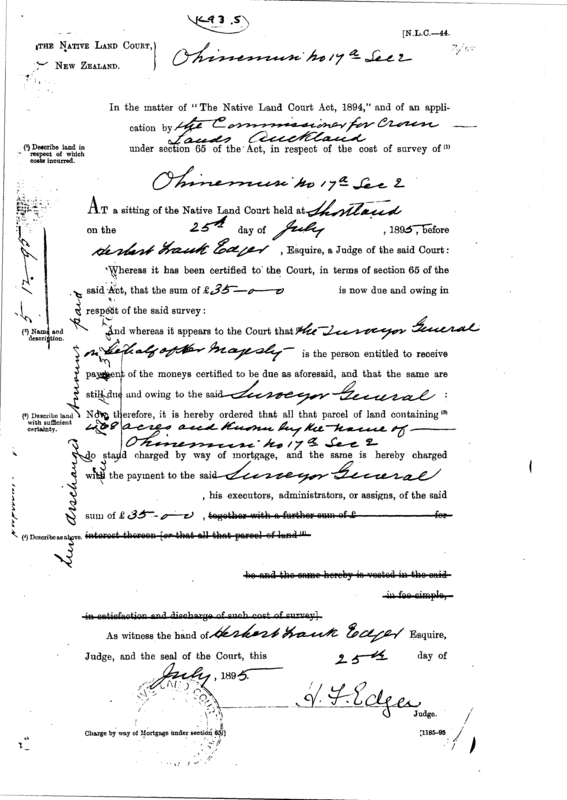 K93.5
[N.L.C.—44.
THE NATIVE LAND COURT,
NEW ZEALAND.
Ohinemuri No 17a Sec 2
In the matter of "The Native Land Court Act, 1894," and of an appli-
cation by the Commissioner for Crown
Lands Auckland
(1) Describe land in
respect of which
costs incurred.
under section 65 of the Act, in respect of the cost of survey of (1)
Ohinemuri No 17a Sec 2
AT a sitting of the Native Land Court held at Shortland
on the 25th day of July, 1895, before
Herbert Frank Edger, Esquire, a Judge of the said Court:
Whereas it has been certified to the Court, in terms of section 65 of the
said Act, that the sum of £35—0—0 is now due and owing in
respect of the said survey:
(2) Name and
description.
And whereas it appears to the Court that the Surveyor General
on behalf of Her Majesty is the person entitled to receive
payment of the moneys certified to be due as aforesaid, and that the same are
still due and owing to the said Surveyor General:
(3) Describe land
with sufficient
certainty.
Now, therefore, it is hereby ordered that all that parcel of land containing (3)
acres and known by the name of
Ohinemuri No 17a Sec 2
do stand charged by way of mortgage, and the same is hereby charged
with the payment to the said Surveyor General
, his executors, administrators, or assigns, of the said
sum of £35-0-0, together with a further sum of £ for
(4) Describe as above.
interest thereon [or that all that parcel of land (4)
be and the same hereby is vested in the said
in fee-simple,
in satisfaction and discharge of such cost of survey].
As witness the hand of Herbert Frank Edger Esquire,
Judge, and the seal of the Court, this 25th day of
July, 1895.
H. F. Edger
Judge.
Charge by way of Mortgage under section 65]
[1185-95
Lien discharged amount paid
5 12 95